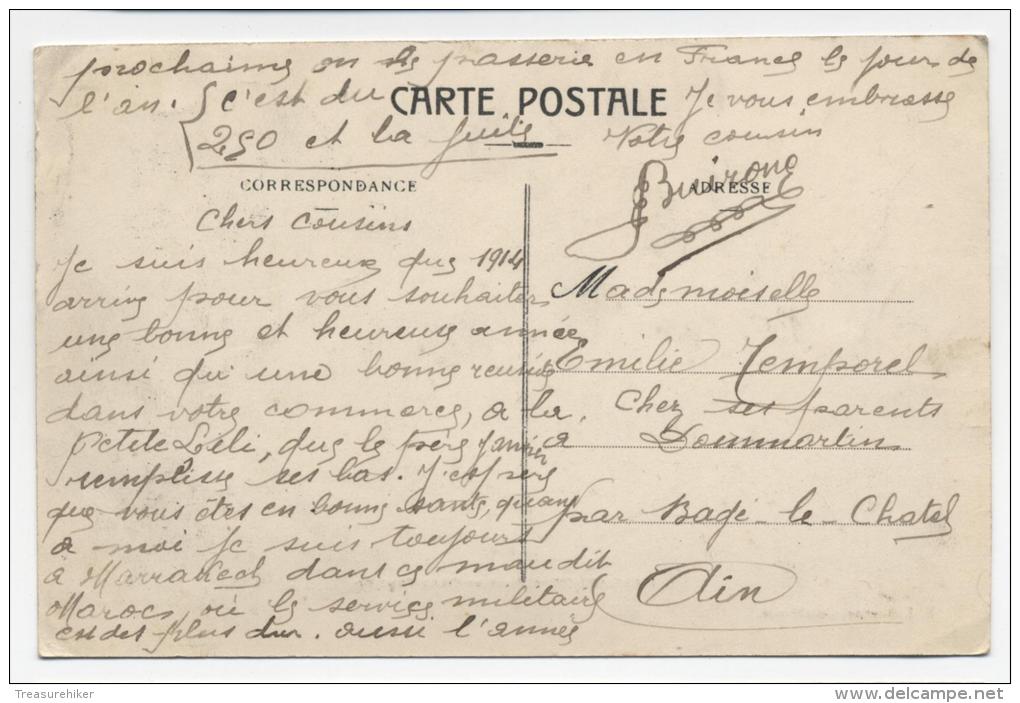 CARTE POSTALE
CORRESPONDANCE
ADRESSE
Chers Cousins
Je suis heureux que 1914
arrive pour vous souhaiter
une bonne et heureuse année
ainsi qu'une bonne reussite
dans votre commerce, a la
Petite Lili, que le père Janvier
remplisse ses bas. J'espère
que vous êtes en bonne sante, quant
a moi je suis toujours
a Marrakech dans ce maudit
Maroc, où le service militaire
est des plus dur. aussi l'année
prochaine on le passerie en France le jour de
l'an. C'est du
250 et la fuite
Je vous embrasse
Votre cousin
Mademoiselle
Emilie Temporel
Chez ses parents
a Dommartin
par Bagé-le-Chatel
Ain
Treasurehiker
www.delcampe.net